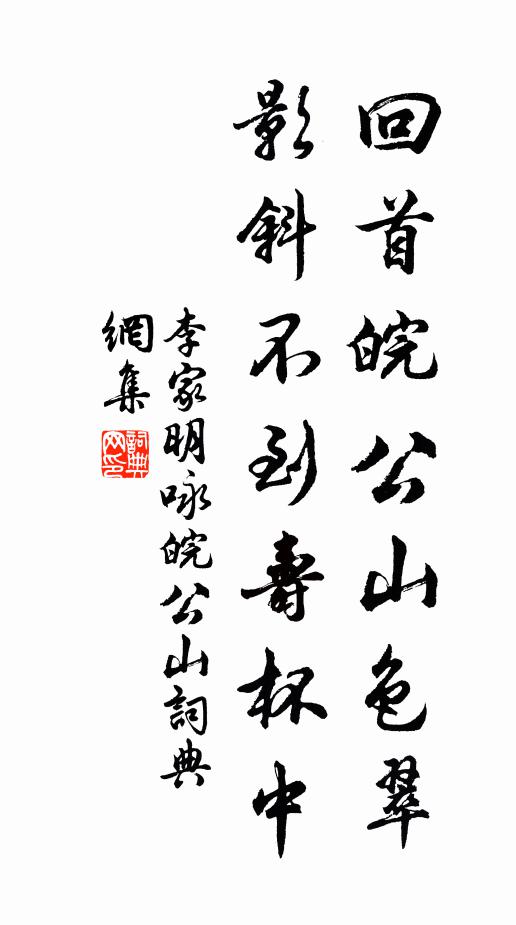 回首皖公山色翠
影斜不到壽杯中
李家明咏皖公山詞典
網集
詞典
网印